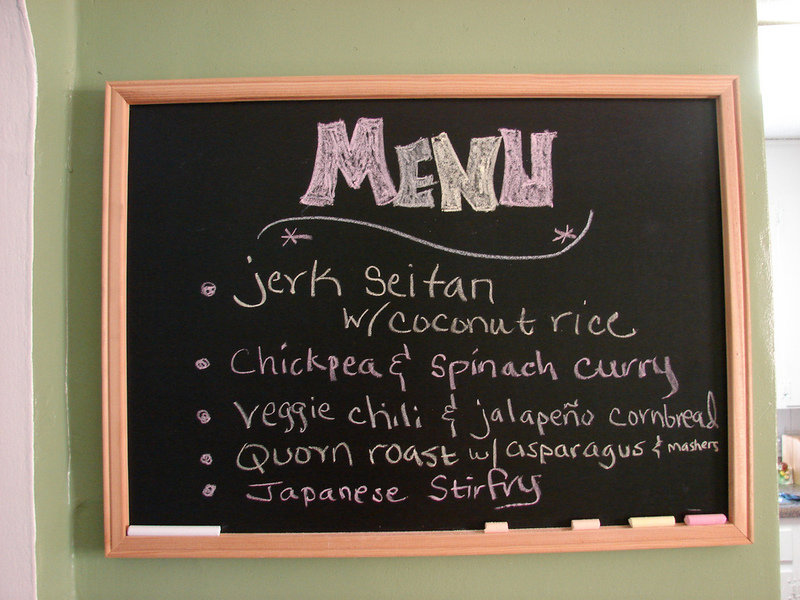 MENU
jerk Seitan
w/coconut rice
Chickpea & Spinach curry
Veggie chili & jalapeño cornbread
Quorn roast w/ asparagus & mashers
Japanese Stirfry